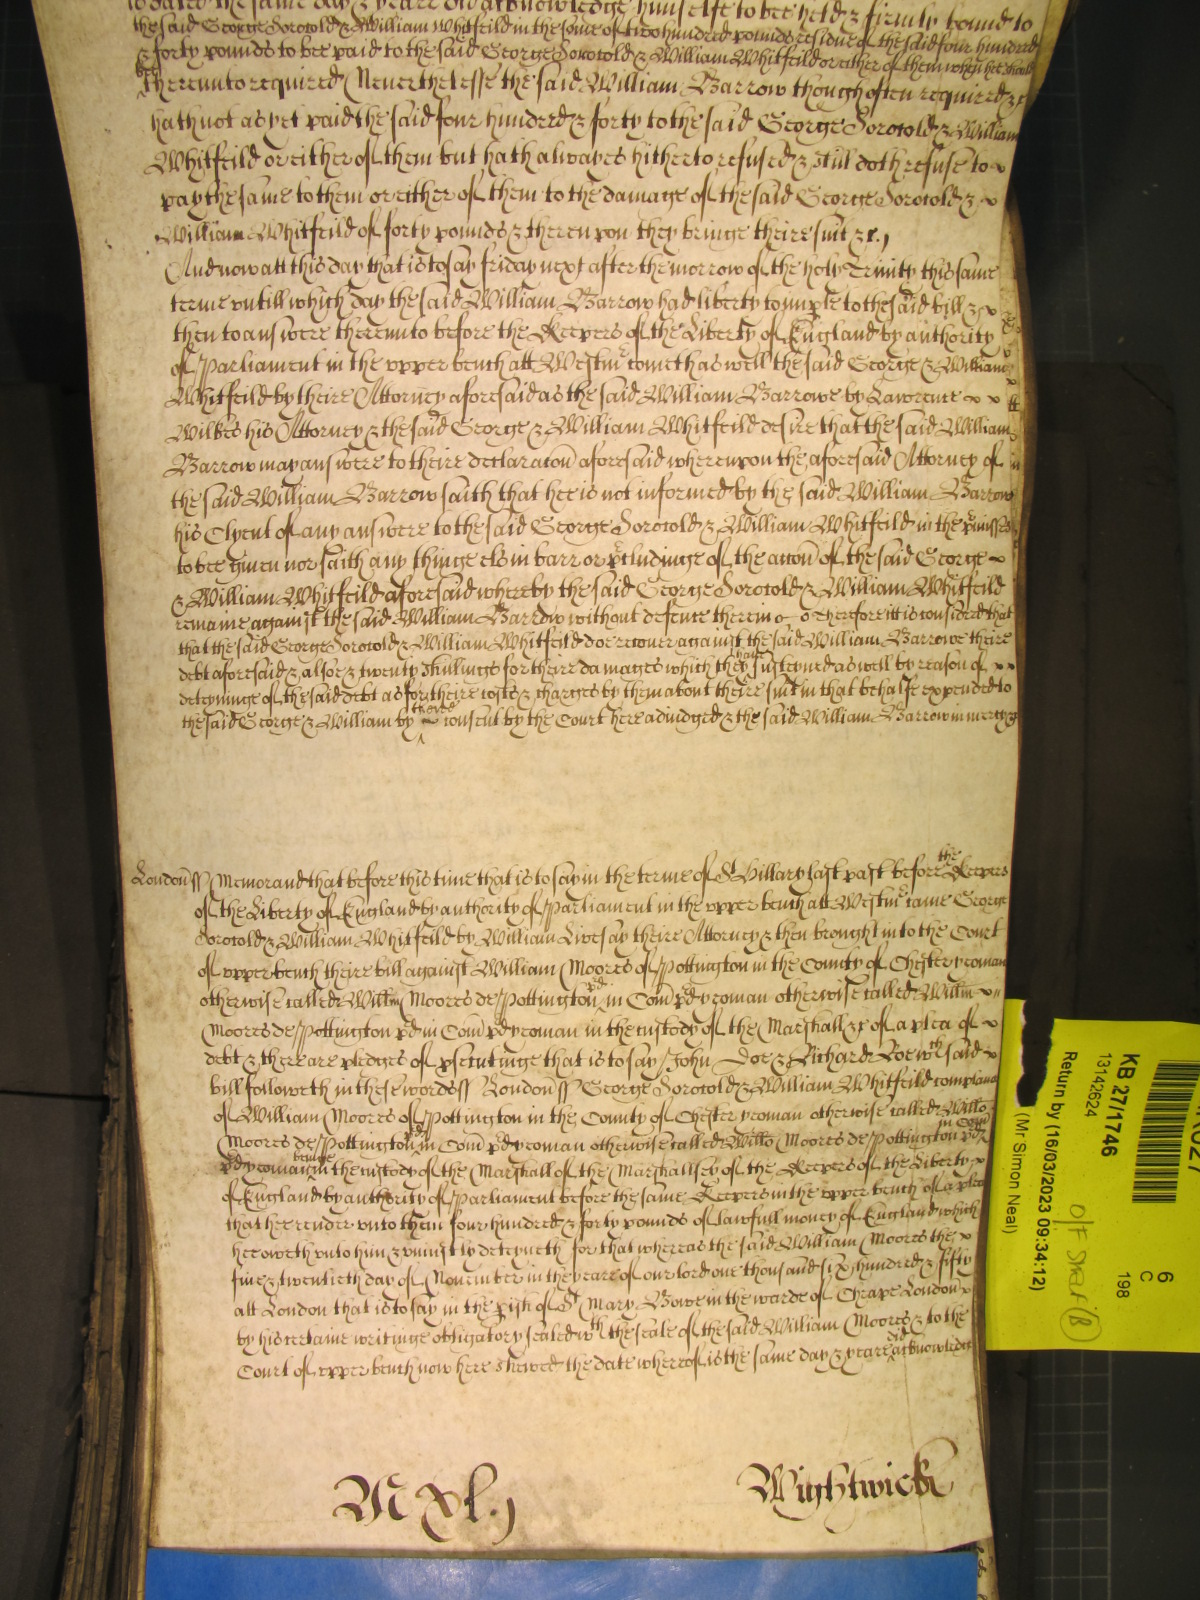 is dated the same day & yeare did acknowledge himselfe to bee held & firmly bound to
the said George Sorocold & William Whitfeild in the some of two hundred pounds residue of the said four hundred
& forty pounds to bee paid to the said George Sorocold & William Whitfeild or either of them when hee should
bee thereunto required Neverthelesse the said William Barrow though often required &c
hath not as yet paid the said four hundred & forty to the said George Sorocold & William
Whitfeild or either of them but hath alwayes hitherto refused & still doth refuse to
pay the same to them or either of them to the damage of the said George Sorocold &
William Whitfeild of forty pounds & thereupon they bringe theire suit &c.
And now att this day that is to say friday next after the morrow of the holy Trinity this same
terme untill which day the said William Barrow had liberty to imple to the said bill &
then to answere thereunto before the Keepers of the Liberty of England by authority
of Parliament in the upper bench att Westmr cometh as well the said George & William
Whitfeild by theire Attorney aforesaid as the said William Barrowe by Lawrence
Wilkes his Attorney & the said George & William Whitfeild desire that the said William
Barrow may answere to theire declaracon aforesaid whereupon the aforesaid Attorney of
the said William Barrow saith that hee is not informed by the said William Barrow
his Clyent of any answere to the said George Sorocold & William Whitfeild in the pmisses
to bee given nor saith any thinge els in barr or pcludinge of the accon of the said George
& William Whitfeild aforesaid whereby the said George Sorocold & William Whitfeild
remaine against the said William Barrow without defence therein Therefore it is considered that
that the said George Sorocold & William Whitfeild doe recover against the said William Barrowe theire
debt aforesaid & alsoe & twenty shillings for theire damages which they have susteyned as well by reason of
deteyninge of the said debt as for theire costs & charges by them about theire suit in that behalfe expended to
the said George & William by theire consent by the Court here adiudged & the said William Barrow in mercy &c
London ss Memorand that before this time that is to say in the terme of St Hillary last past before the Keepers
of the Liberty of England by authority of Parliament in the upper bench att Westmr came George
Sorocold & William Whitfeild by William Livesay theire Attorney & then brought into the Court
of upper bench theire bill against William Moores of Pottington in the County of Chester yeoman
otherwise called Willm Moores de Pottington pd in Com pd yeoman otherwise called Willm
Moores de Pottington pd in Com pd yeoman in the custody of the Marshall &c of a plea of
debt & there are pledges of psecutinge that is to say John Doe & Richard Roe wth said
bill followeth in these words ss London ss George Sorocold & William Whitfeild complaine
of William Moores of Pottington in the County of Chester yeoman otherwise called Willo
Moores de Pottington pd in Com pd yeoman otherwise called Willo Moores de Pottington pd in Com
pd yeoman beinge in the custody of the Marshall of the Marshallsey of the Keepers of the Liberty
of England by authority of Parliament before the same Keepers in the upper bench of a plea
that hee render unto them four hundred & forty pounds of lawfull money of England which
hee oweth unto him & uniustly deteyneth for that whereas the said William Moores the
five & twentieth day of November in the yeare of our lord one thousand six hundred & fifty
att London that is to say in the pish of St Mary Bowe in the warde of Cheape London
by his certaine writinge obligatory sealed wth the seale of the said William Moores & to the
Court of upper bench now here shewed the date whereof is the same day & yeare did acknowledge
M xl.
Wightwick
KB 27/1746
13142624
Return by (16/03/2023 09:34:12)
(Mr Simon Neal)
6
C
198